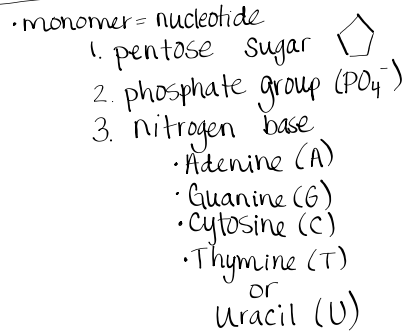 ·monomer = nucleotide
1. pentose sugar
2. phosphate group (PO₄⁻)
3. nitrogen base
·Adenine (A)
·Guanine (G)
·Cytosine (C)
·Thymine (T)
or
Uracil (U)